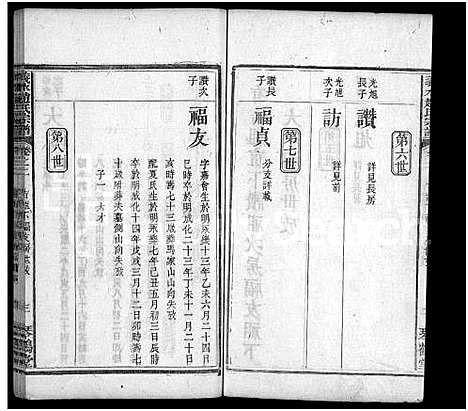 第六世
光旭長子
讚
詳見長房
光旭次子
訪
詳見前
第七世
讚長子
福貞
分支詳載
讚次子
福友
字嘉會生於明永樂十三年乙未六月二十四日
巳時卒於明成化二十三年丁未十一月二十日
卯時壽七十三歲葬馬家山山向失攷
配夏氏生於明永樂七年己丑五月初三日辰時
卒於明成化十四年戊戌三月十二日卯時壽七
十歲附葬夫墓側山向失攷
子一 大才
第八世
琴鶴堂